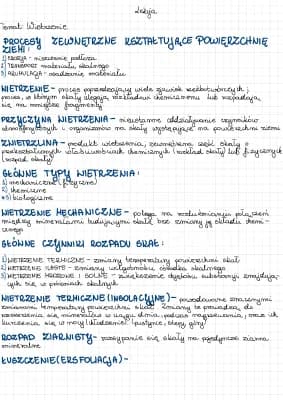 Lekcja
Temat: Wietrzenie
PROCESY ZEWNĘTRZNE KSZTAŁTUJĄCE POWIERZCHNIĘ
ZIEMI:
1) EROZJA - niszczenie podłoża
2) TRANSPORT materiału skalnego
3) AKUMULACJA - osadzanie materiału
WIETRZENIE - proces poprzedzający wiele zjawisk rzeźbotwórczych;
proces, w którym skały ulegają rozkładowi chemicznemu lub rozpadają
się na mniejsze fragmenty
PRZYCZYNA WIETRZENIA - nieustanne oddziaływanie czynników
atmosferycznych i organizmów na skały występujące na powierzchni ziemi
ZWIETRZELINA - produkt wietrzenia, zewnętrzna część skały o
przekształconych właściwościach chemicznych (rozkład skały) lub fizycznych
(rozpad skały)
GŁÓWNE TYPY WIETRZENIA:
1) mechaniczne (fizyczne)
2) chemiczne
3) biologiczne
WIETRZENIE MECHANICZNE - polega na rozluźnieniu połączeń
między minerałami budującymi skałę bez zmiany jej składu chemi-
cznego
GŁÓWNE CZYNNIKI ROZPADU SKAŁ:
1) WIETRZENIE TERMICZNE - zmiany temperatury powierzchni skał
2) - zmiany wilgotności ośrodka skalnego
3) WIETRZENIE MROZOWE I SOLNE - zwiększenie objętości substancji znajdują-
cych się w porach skalnych
WIETRZENIE TERMICZNE (INSOLACYJNE) - powodowane znacznymi
zmianami temperatury powierzchni skał. Zmiany te prowadzą do
rozszerzania się minerałów w ciągu dnia, podczas nagrzewania, oraz ich
kurczenia się w nocy (chłodzenie) (pustynie, stepy, góry)
ROZPAD ZIARNISTY - rozsypanie się skały na pojedyncze ziarna
mineralne
ŁUSZCZENIE (EKSFOLIACJA) -